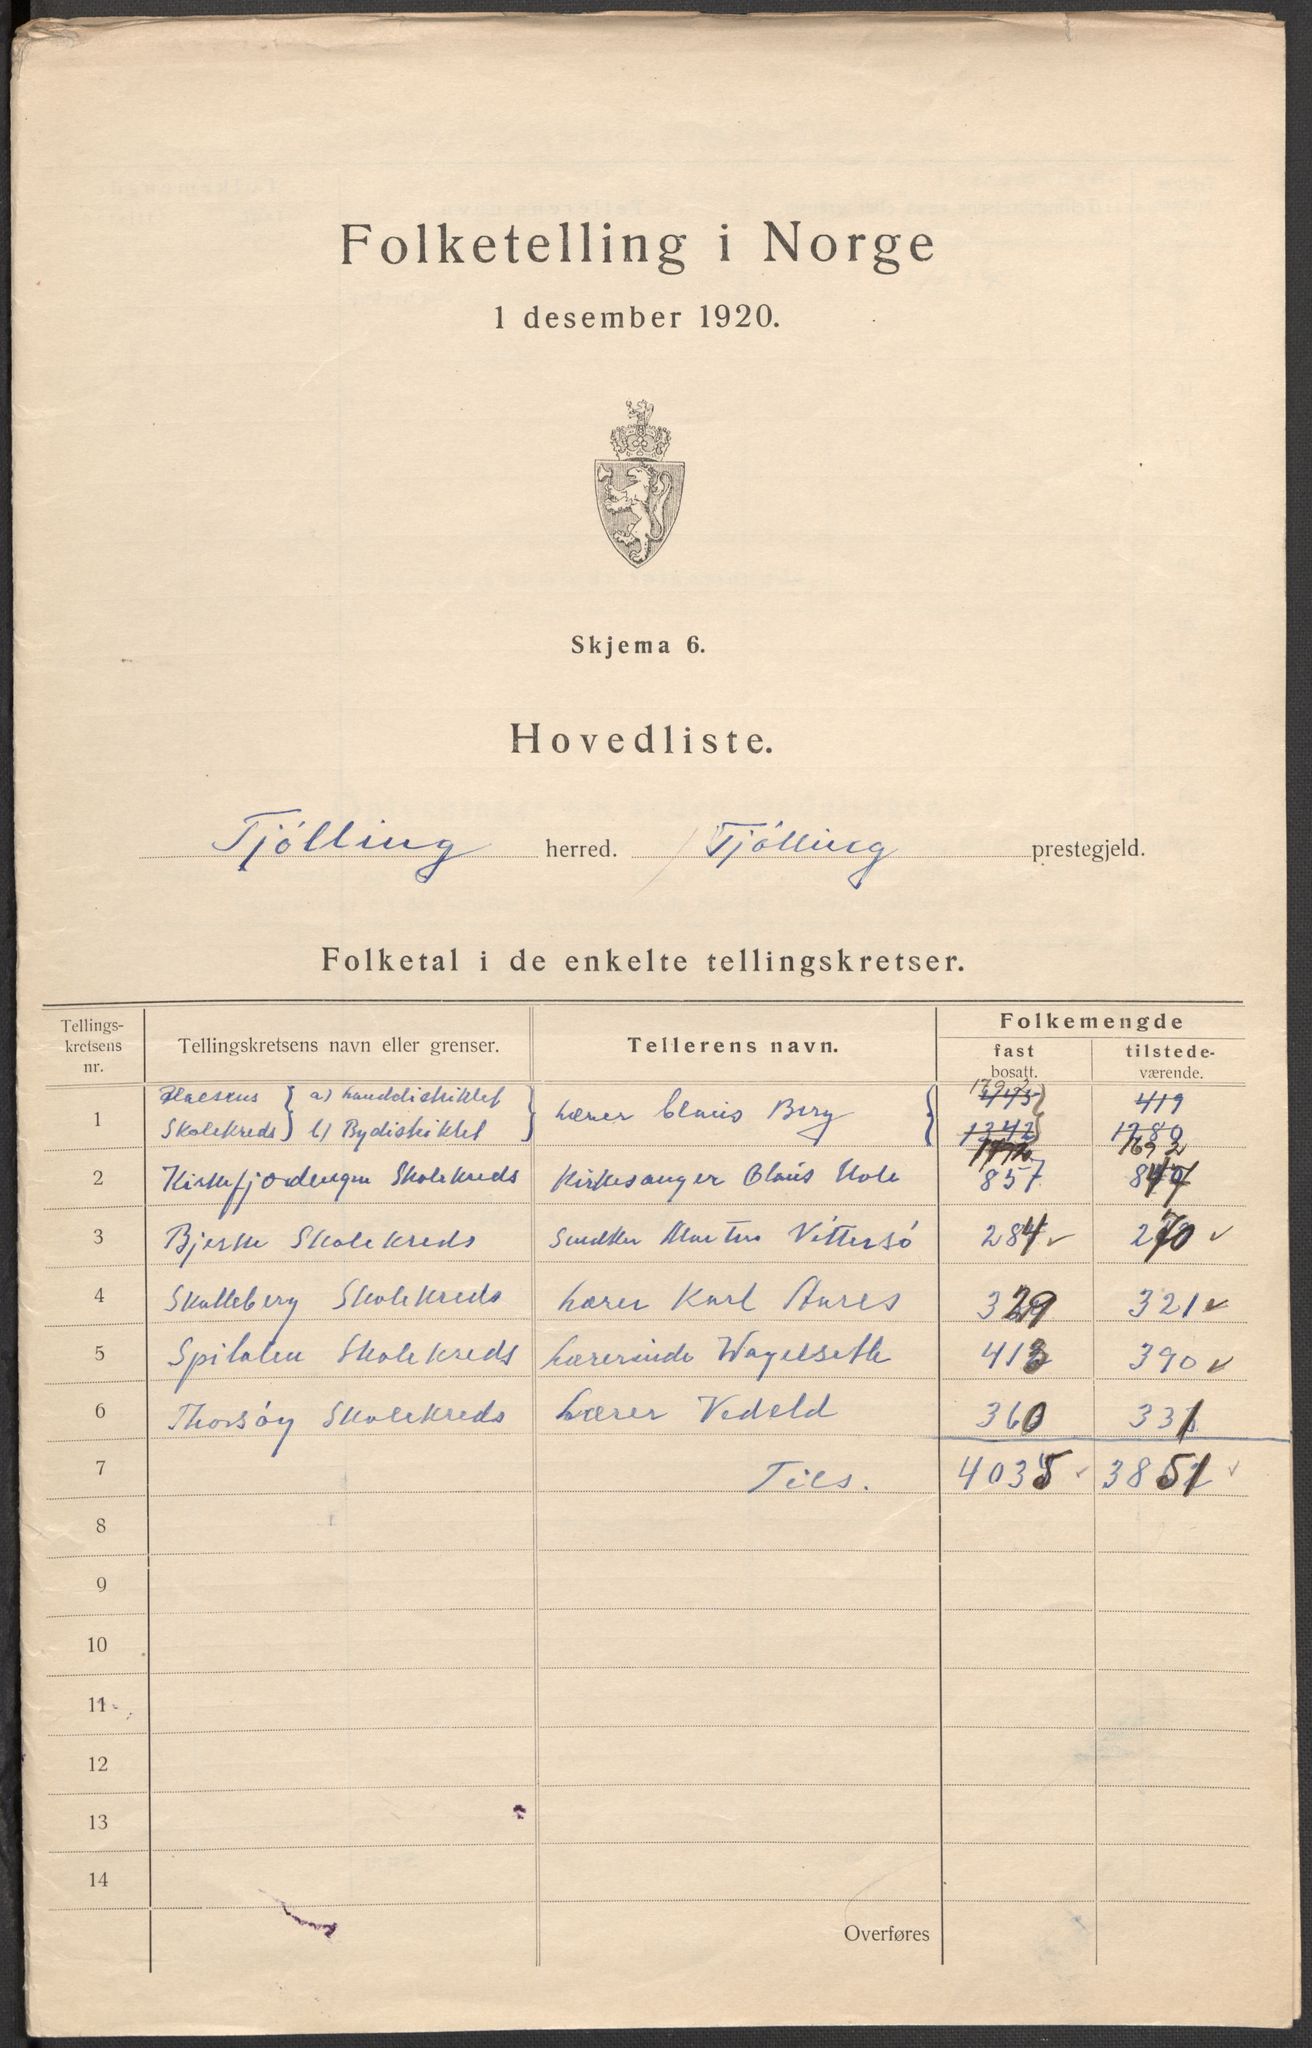 Folketelling i Norge
1 desember 1920.
Skjema 6.
Hovedliste.
Tjölling herred. Tjölling prestegjeld.
Folketal i de enkelte tellingskretser.
Tellings-kretsens nr. Tellingskretsens navn eller grenser. Tellerens navn. Folkemengde
fast bosatt. tilstede-værende.
1792
1 a) Landdistriktet 443 419
Skolekreds b) Bydistriktet Lærer Claus Berg 1342 1280
1692
2 Kirkefjordengen Skolekreds Kirkesanger Claus Hole 857 847
3 Bjerke Skolekreds Martin Vittersö 284 270
4 Skalleberg Skolekreds Lærer Karl Aares 329 321
5 Spitalen Skolekreds Lærerinde Wagelseth 413 390
6 Thorsöy Skolekreds Lærer Vedeld 360 331
7 Tils. 4035 3851
8
9
10
11
12
13
14
Overføres